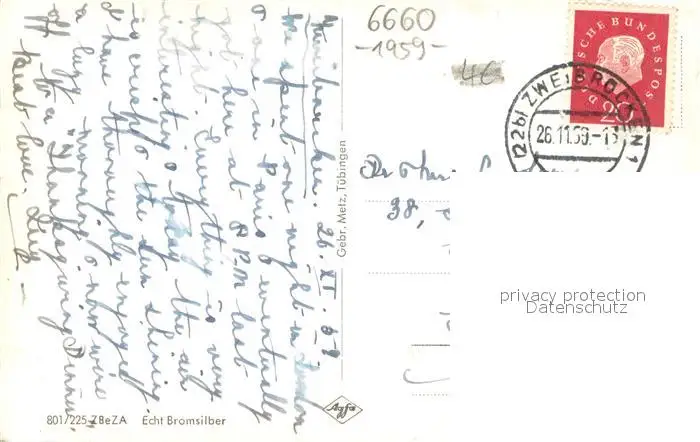 Zweibrücken. 26. XI. 59
We spent one night in London
& one in Paris & eventually
got here at 8 P.M. last
night. Everything is very
interesting & today the air
is crisp & the sun shining.
I have thoroughly enjoyed
a lazy morning & now we're
off to a "Thanksgiving Dinner."
Best love,
6660
-1959-
DEUTSCHE BUNDESPOST
20
(22b) ZWEIBRÜCKEN 1
26.11.59.-13
38,
Gebr. Metz, Tübingen
privacy protection
Datenschutz
Agfa
801/225 ZBeZA Echt Bromsilber